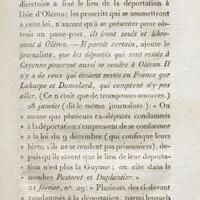 directoire a fixé le lieu de la déportation à
l'isle d'Oléron; les proscrits qui se soumettront
à cette loi, n'auront qu'à se présenter pour ob-
tenir un passe-port, ils iront seuls et libre-
ment à Oléron. — Il paroît certain, ajoute le
journaliste, que les déportés qui sont restés à
Cayenne pourront aussi se rendre à Oléron. Il
n'y a de ceux qui étoient restés en France que
Laharpe et Dumolard, qui comptent n'y pas
aller. (Ce n'étoit que de trompeuses amorces.)
28 janvier (dit le même journaliste): « On
» assure que plusieurs ex-députés condamnés
» à la déportation s'empressent de se conformer
» à la loi du 9 décembre (qui confisque leurs
biens s'ils ne se rendent pas prisonniers), de-
puis qu'ils savent que le lieu de leur déporta-
» tion n'est plus la Guyane: on cite dans le
» nombre Pastoret et Duplantier. »
21 février, n°. 29: « Plusieurs des ci-devant
condamnés à la déportation, parmi lesquels